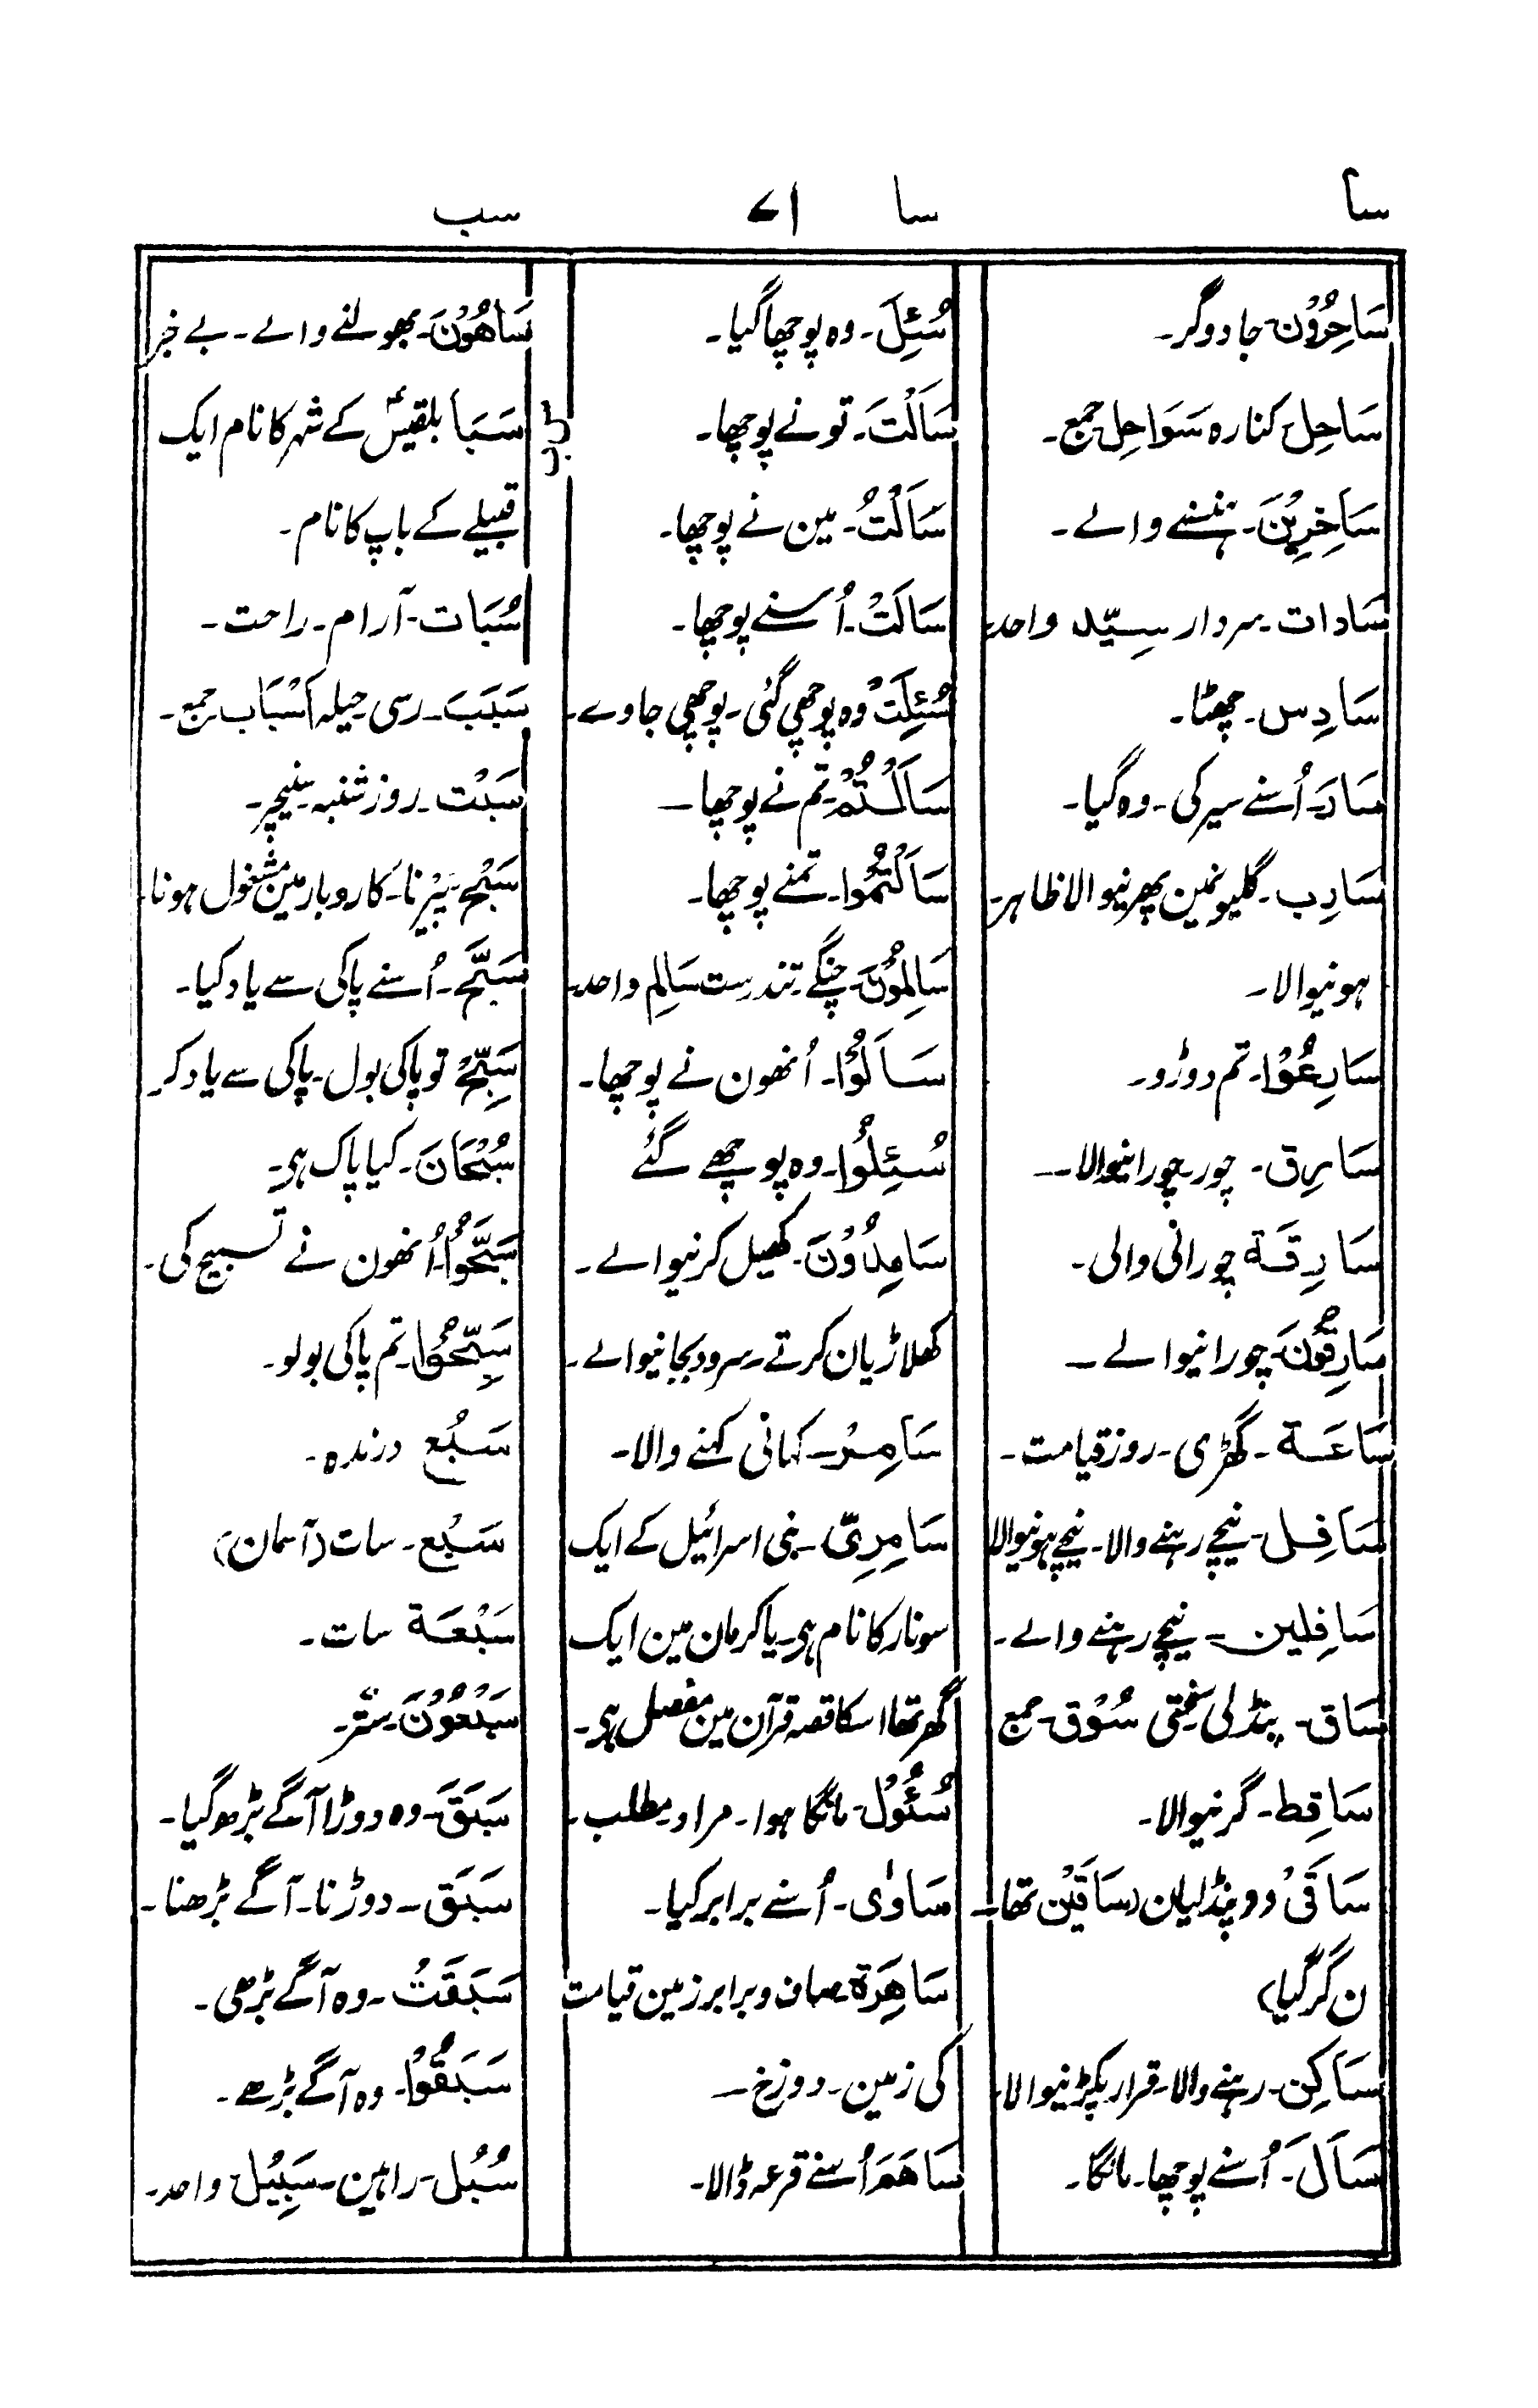 سا
سا
۷۱
سب
سَاحِرُوْن۔ جادوگر۔
سَاحِل کنارہ سَوَاحِل جمع۔
سَاخِرِیْنَ۔ ہنسنے والے۔
سَادات۔ سردار سیّد واحد۔
سَادِس۔ چھٹا۔
سَارَ۔ اُسنے سیر کی۔ وہ گیا۔
سَارِب۔ گلیونمین پھرنیوالا ظاہر۔
ہونیوالا۔
سَارِعُوْا۔ تم دوڑو۔
سَارِق۔ چور۔ چورانیوالا۔
سَارِقَۃ چورانی والی۔
سَارِقُوْنَ۔ چورانیوالے۔
سَاعَۃ۔ گھڑی۔ روز قیامت۔
سَافِل۔ نیچے رہنے والا۔ نیچے ہونیوالا
سَافِلین۔ نیچے رہنے والے۔
سَاق۔ پنڈلی سختی سُوْق۔ جمع
سَاقِط۔ گرنیوالا۔
سَاقَیْ دو پنڈلیان (سَاقَیْن تھا۔
ن گر گیا)
سَاکِن۔ رہنے والا۔ قرار پکڑنیوالا۔
سَاَلَ۔ اُسنے پوچھا۔ مانگا۔
سُئِلَ۔ وہ پوچھا گیا۔
سَاَلْتَ۔ تو نے پوچھا۔
سَاَلْتُ۔ مین نے پوچھا۔
سَاَلَتْ۔ اُسنے پوچھا۔
سُئِلَتْ وہ پوچھی گئی۔ پوچھی جاوے۔
سَاَلْتُمْ۔ تم نے پوچھا۔
سَاَلْتُمُوا۔ تمنے پوچھا۔
سَالِمُوْنَ۔ چنگے۔ تندرست سَالِم واحد۔
سَاَلُوْا۔ اُنھون نے پوچھا۔
سُئِلُوْا۔ وہ پوچھے گئے
سَامِدُوْنَ۔ کھیل کرنیوالے۔
کھلاڑیان کرتے۔ سرود بجانیوالے۔
سَامِرْ۔ کہانی کہنے والا۔
سَامِرِیّ۔ بنی اسرائیل کے ایک
سونار کا نام ہی۔ یا کرمان مین ایک
گھر تھا اسکا قصہ قرآن مین مفصل ہی۔
سُئُوْل۔ مانگا ہوا۔ مراد۔ مطلب۔
سَاوٰی۔ اُسنے برابر کیا۔
سَاھِرَۃ۔ صاف و برابر زمین قیامت
کی زمین۔ دوزخ۔
سَاھَمَ اُسنے قرعہ ڈالا۔
سَاھُوْنَ۔ بھولنے والے۔ بے خبر
سَبَأ بلقیس کے شہر کا نام ایک
قبیلے کے باپ کا نام۔
سُبَات۔ آرام۔ راحت۔
سَبَبَ۔ رسی۔ حیلہ اَسْبَاب۔ جمع۔
سَبْت۔ روز شنبہ۔ سنیچر۔
سَبْح۔ پَیْرنا۔ کاروبار مین مشغول ہونا۔
سَبَّحَ۔ اُسنے پاکی سے یاد کیا۔
سَبِّحْ تو پاکی بول۔ پاکی سے یاد کر
سُبْحَانَ۔ کیا پاک ہی۔
سَبَّحُوْا۔ اُنھون نے تسبیح کی۔
سَبِّحُوْا۔ تم پاکی بولو۔
سَبُع درندہ۔
سَبْع۔ سات (آسمان)
سَبْعَۃ سات۔
سَبْعُوْنَ۔ ستّر۔
سَبَقَ۔ وہ دوڑا آگے بڑھ گیا۔
سَبَق۔ دوڑنا۔ آگے بڑھنا۔
سَبَقَتْ۔ وہ آگے بڑھی۔
سَبَقُوْا۔ وہ آگے بڑھے۔
سُبُل۔ راہین۔ سَبِیْل واحد۔